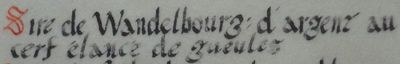 Sire de Wandelbourg: d'argent au
cerf élancé de gueules